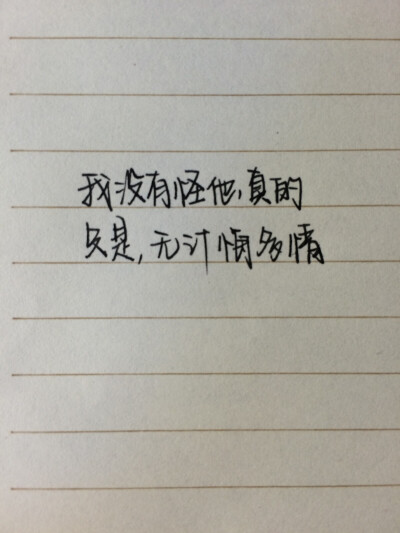 我没有怪他,真的
只是,无计悔多情